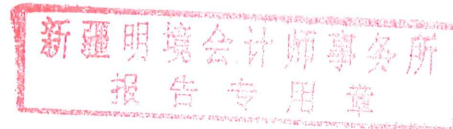 新疆明境会计师事务所
报告专用章